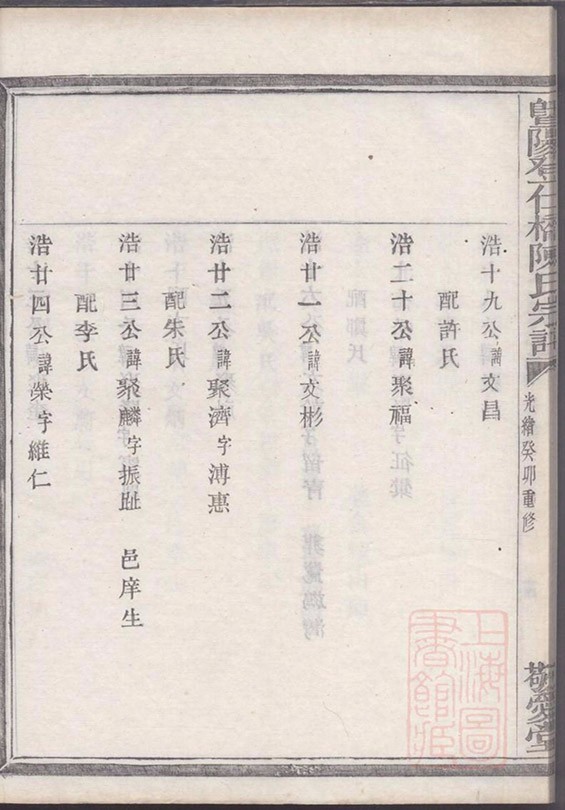 暨陽夽仁橋陳氏宗譜
光緒癸卯重修
敬愛堂
浩十九公諱文昌
配許氏
浩二十公諱聚福
浩廿一公諱文彬
浩廿二公諱聚濟字溥惠
配朱氏
浩廿三公諱聚麟字振趾 邑庠生
配李氏
浩廿四公諱榮字維仁
上海圖
書館藏